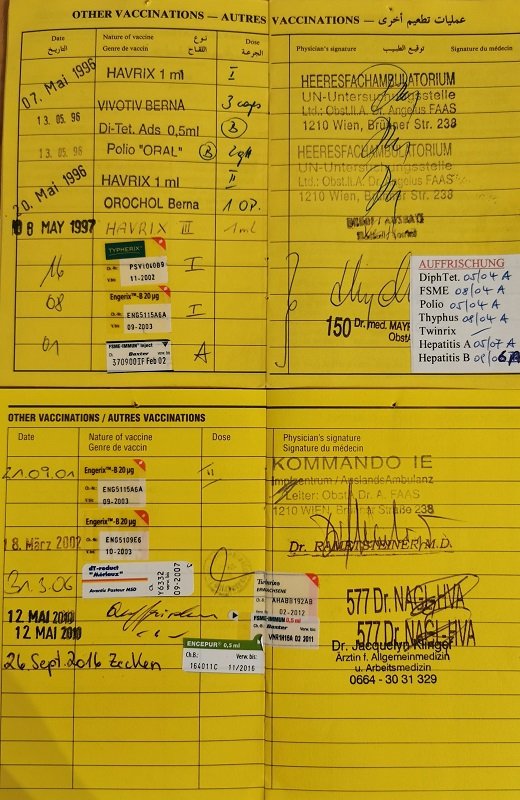 OTHER VACCINATIONS — AUTRES VACCINATIONS — عمليات تطعيم أخرى
Date
التاريخ
Nature of vaccine نوع
Genre de vaccin اللقاح
Dose
الجرعة
Physician's signature توقيع الطبيب Signature du médecin
07. Mai 1996
HAVRIX 1 ml I
VIVOTIV BERNA 3 caps
13. 05. 96
Di-Tet. Ads 0,5ml B
13. 05. 96
Polio "ORAL" B
20. Mai 1996
HAVRIX 1 ml II
OROCHOL Berna 1 OP.
08 MAY 1997 HAVRIX III 1 ml
HEERESFACHAMBULATORIUM
UN-Untersuchungsstelle
Ltd.: Obst.ll.A. Dr. Angelus FAAS
1210 Wien, Brünner Str. 238
HEERESFACHAMBULATORIUM
UN-Untersuchungsstelle
Ltd.: Obst.ll.A. Dr. Angelus FAAS
1210 Wien, Brünner Str. 238
16
08
01
TYPHERIX™
Ch.-B.: PSVI040B9
V.bis: 11-2002
I
Engerix™-B 20 µg
ENG5115A6A
09-2003
I
FSME-IMMUN Inject
Ch.-B.: Baxter verw. bis
370900IF Feb 02
A
150 Dr. med. MAYR
ObstA
AUFFRISCHUNG
DiphTet. 05/04 A
FSME 08/04 A
Polio 05/04 A
Thyphus 08/04 A
Twinrix —
Hepatitis A 05/07 A
Hepatitis B 09/06 A
OTHER VACCINATIONS / AUTRES VACCINATIONS
Date
Nature of vaccine
Genre de vaccin
Dose
Physician's signature
Signature du médecin
21.09.01
Engerix™-B 20 µg
ENG5115A6A
09-2003
III
KOMMANDO IE
Impfzentrum / AuslandsAmbulanz
Leiter: ObstA Dr. A. FAAS
1210 WIEN, Brünner Straße 238
18. März 2002
Engerix™-B 20 µg
ENG5109E6
10-2003
Dr. RAMETSTEINER M.D.
31.3.06
dT-reduct
"Mérieux"
Aventis Pasteur MSD
Y6332
09-2007
Twinrix
ERWACHSENE
AHABB192AB
02-2012
FSME-IMMUN 0,5 ml
Baxter
VNR1H18A 03 2011
12. MAI 2010
12. MAI 2010
577 Dr. NAGL HVA
577 Dr. NAGL-HVA
26. Sept. 2016 Zecken
ENCEPUR® 0,5 ml
Ch.B.: Verw. bis:
164011C 11/2016
Dr. Jacquelyn Klinger
Ärztin f. Allgemeinmedizin
u. Arbeitsmedizin
0664 - 30 31 329